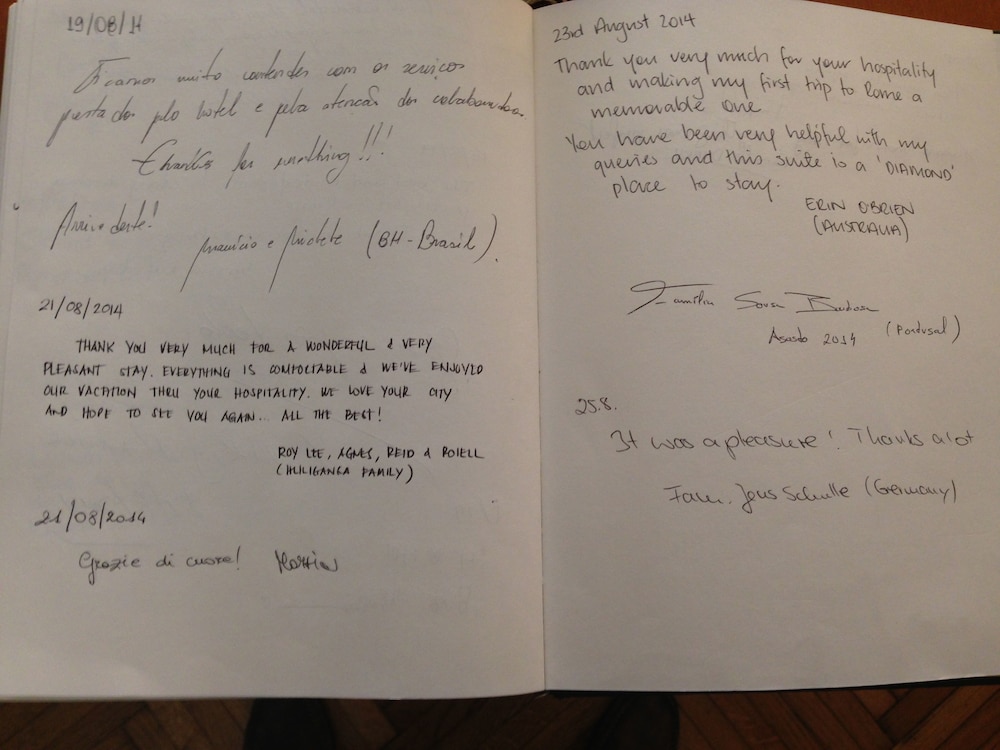 19/08/14
Ficamos muito contentes com os serviços
prestados plo hotel e pela atenção dos colaboradores
Thanks for everything!!!
Arrivederte!
Maurício e (BH-Brasil).
21/08/2014
THANK YOU VERY MUCH FOR A WONDERFUL & VERY
PLEASANT STAY. EVERYTHING IS COMFORTABLE & WE'VE ENJOYED
OUR VACATION THRU YOUR HOSPITALITY. WE LOVE YOUR CITY
AND HOPE TO SEE YOU AGAIN... ALL THE BEST!
ROY LEE, AGNES, REID &
(HULIGANGA FAMILY)
21/08/2014
Grazie di cuore!
23rd August 2014
Thank you very much for your hospitality
and making my first trip to Rome a
memorable one
You have been very helpful with my
queries and this suite is a 'DIAMOND'
place to stay.
ERIN O'BRIEN
(AUSTRALIA)
Família Sousa Barbosa
Agosto 2014 (Portugal)
25.8.
It was a pleasure! Thanks a lot
Fam. Jens Schulle (Germany)